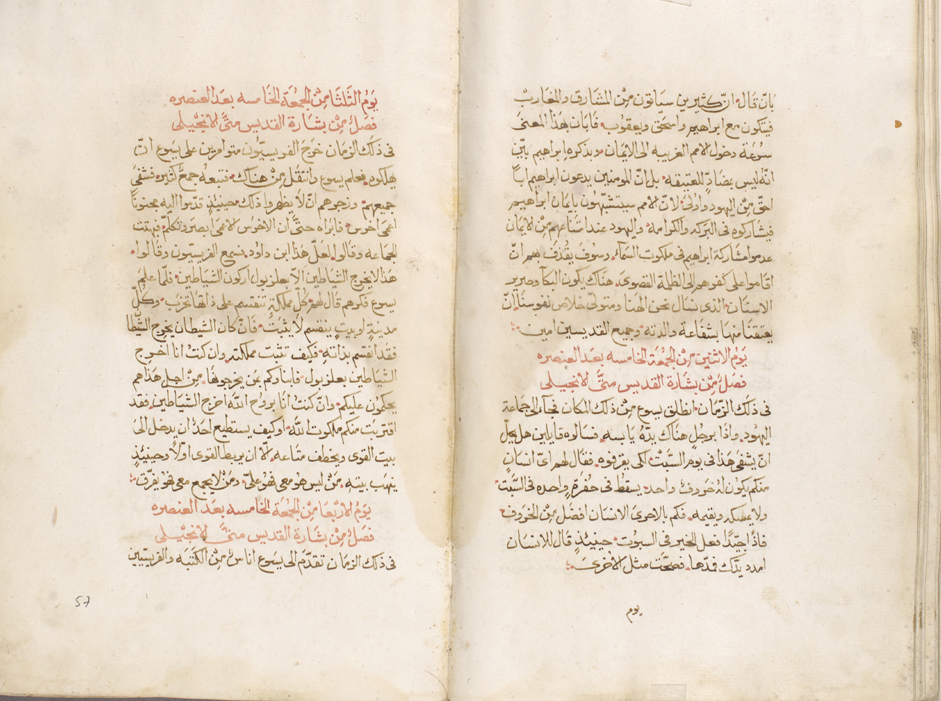 بانّ قال انّ كثيرين سياتون من المشارق والمغارب
فيتكون مع ابراهيم واسحق ويعقوب فابان هذا المعنى
سرعة دخول الامم الغريبه الى الايمان وبذكره ابراهيم بيّن
انّه ليس بضادّ للعتيقه بل انّ المومنين يدعون ابراهيم ابًا
احقّ من اليهود واولى لانّ الامم سيتشبهون بايمان ابراهيم
فيشاركوه في البركه والكرامه واليهود عند امتناعهم من الايمان
عدموا مشاركة ابراهيم في ملكوت السماء وسوف يقذف بهم انّ
اقاموا على كفرهم الى الظلمة القصوى هناك يكون البكا وصرير
الاسنان الذى نسال نحن الهنا ومتولى خلاص نفوسنا انّ
يعتقنا منها بشفاعة والدته وجميع القديسين امين
يوم الاثنين من الجمعة الخامسه بعد العنصره
فصلٌ من بشارة القديس متّى الانجيلى
فى ذلك الزمان انطلق يسوع من ذلك المكان فجاء الى جماعة
اليهود واذا برجلٍ هناك يدهُ يابسه فسالوه قايلين هل يحلّ
انّ يشفى هذا فى يوم السّبت لكى يقرفوه فقال لهم اىّ انسان
منكم يكون لهُ خروف واحد يسقط فى حفرةٍ واحده فى السّبت
ولا يمسكه ويقيمه فكم بالاحرى الانسان افضل من الخروف
فاذًا جيّدًا فعل الخير فى السبوت حينيئذٍ قال للانسان
امدد يدّك فمدّها فصحّت مثل الاخرى
يوم
يوم الثلثا من الجمعة الخامسه بعد العنصره
فصلٌ من بشارة القديس متّى الانجيلى
فى ذلك الزمان خرج الفريسيّون متوامرين على يسوع انّ
يهلكوه فعلم يسوع وانتقل من هناك فتبعهُ جمعٌ كثيرٌ فشفى
جميعهم وزجرهم انّ لا يظهروا ذلك حينيئذٍ قدّموا اليه مجنونًا
اعمى اخرس فابراه حتّى انّ الاخرس الاعمى ابصر وتكلم فبهتت
الجماعه وقالوا لعلّ هذا ابن داود فسمع الفريسيون وقالوا
هذا لا يخرج الشياطين الا ببعلزبول اركون الشياطين فلمّا علم
يسوع فكرهم قال لهم كلّ مملكةٍ تنقسم على ذاتها تخرب وكلّ
مدينةٍ او بيتٍ ينقسم لا يثبت فان كان الشيطان يخرج الشيطا
فقد انقسم بذاته فكيف تثبت مملكته وان كنت انا اخرج
الشياطين ببعلزبول فابناوكم بمن يخرجوها من اجل هذا هم
يحكمون عليكم وانّ كنت انا بروح اللّه اخرج الشياطين فقد
اقتربت منكم ملكوت اللّه او كيف يستطيع احدٌ ان يدخل الى
بيت القوى ويخطف متاعه الا ان يربط القوى اولًا وحينيئذٍ
ينهب بيته من ليس هو معى فهو علىّ ومن لا يجمع معى فهو يفرق
يوم الاربعا من الجمعة الخامسه بعد العنصره
فصلٌ من بشارة القديس متّى الانجيلى
فى ذلك الزمان تقدّم الى يسوع اناسٌ من الكتبه والفريسيّين
57